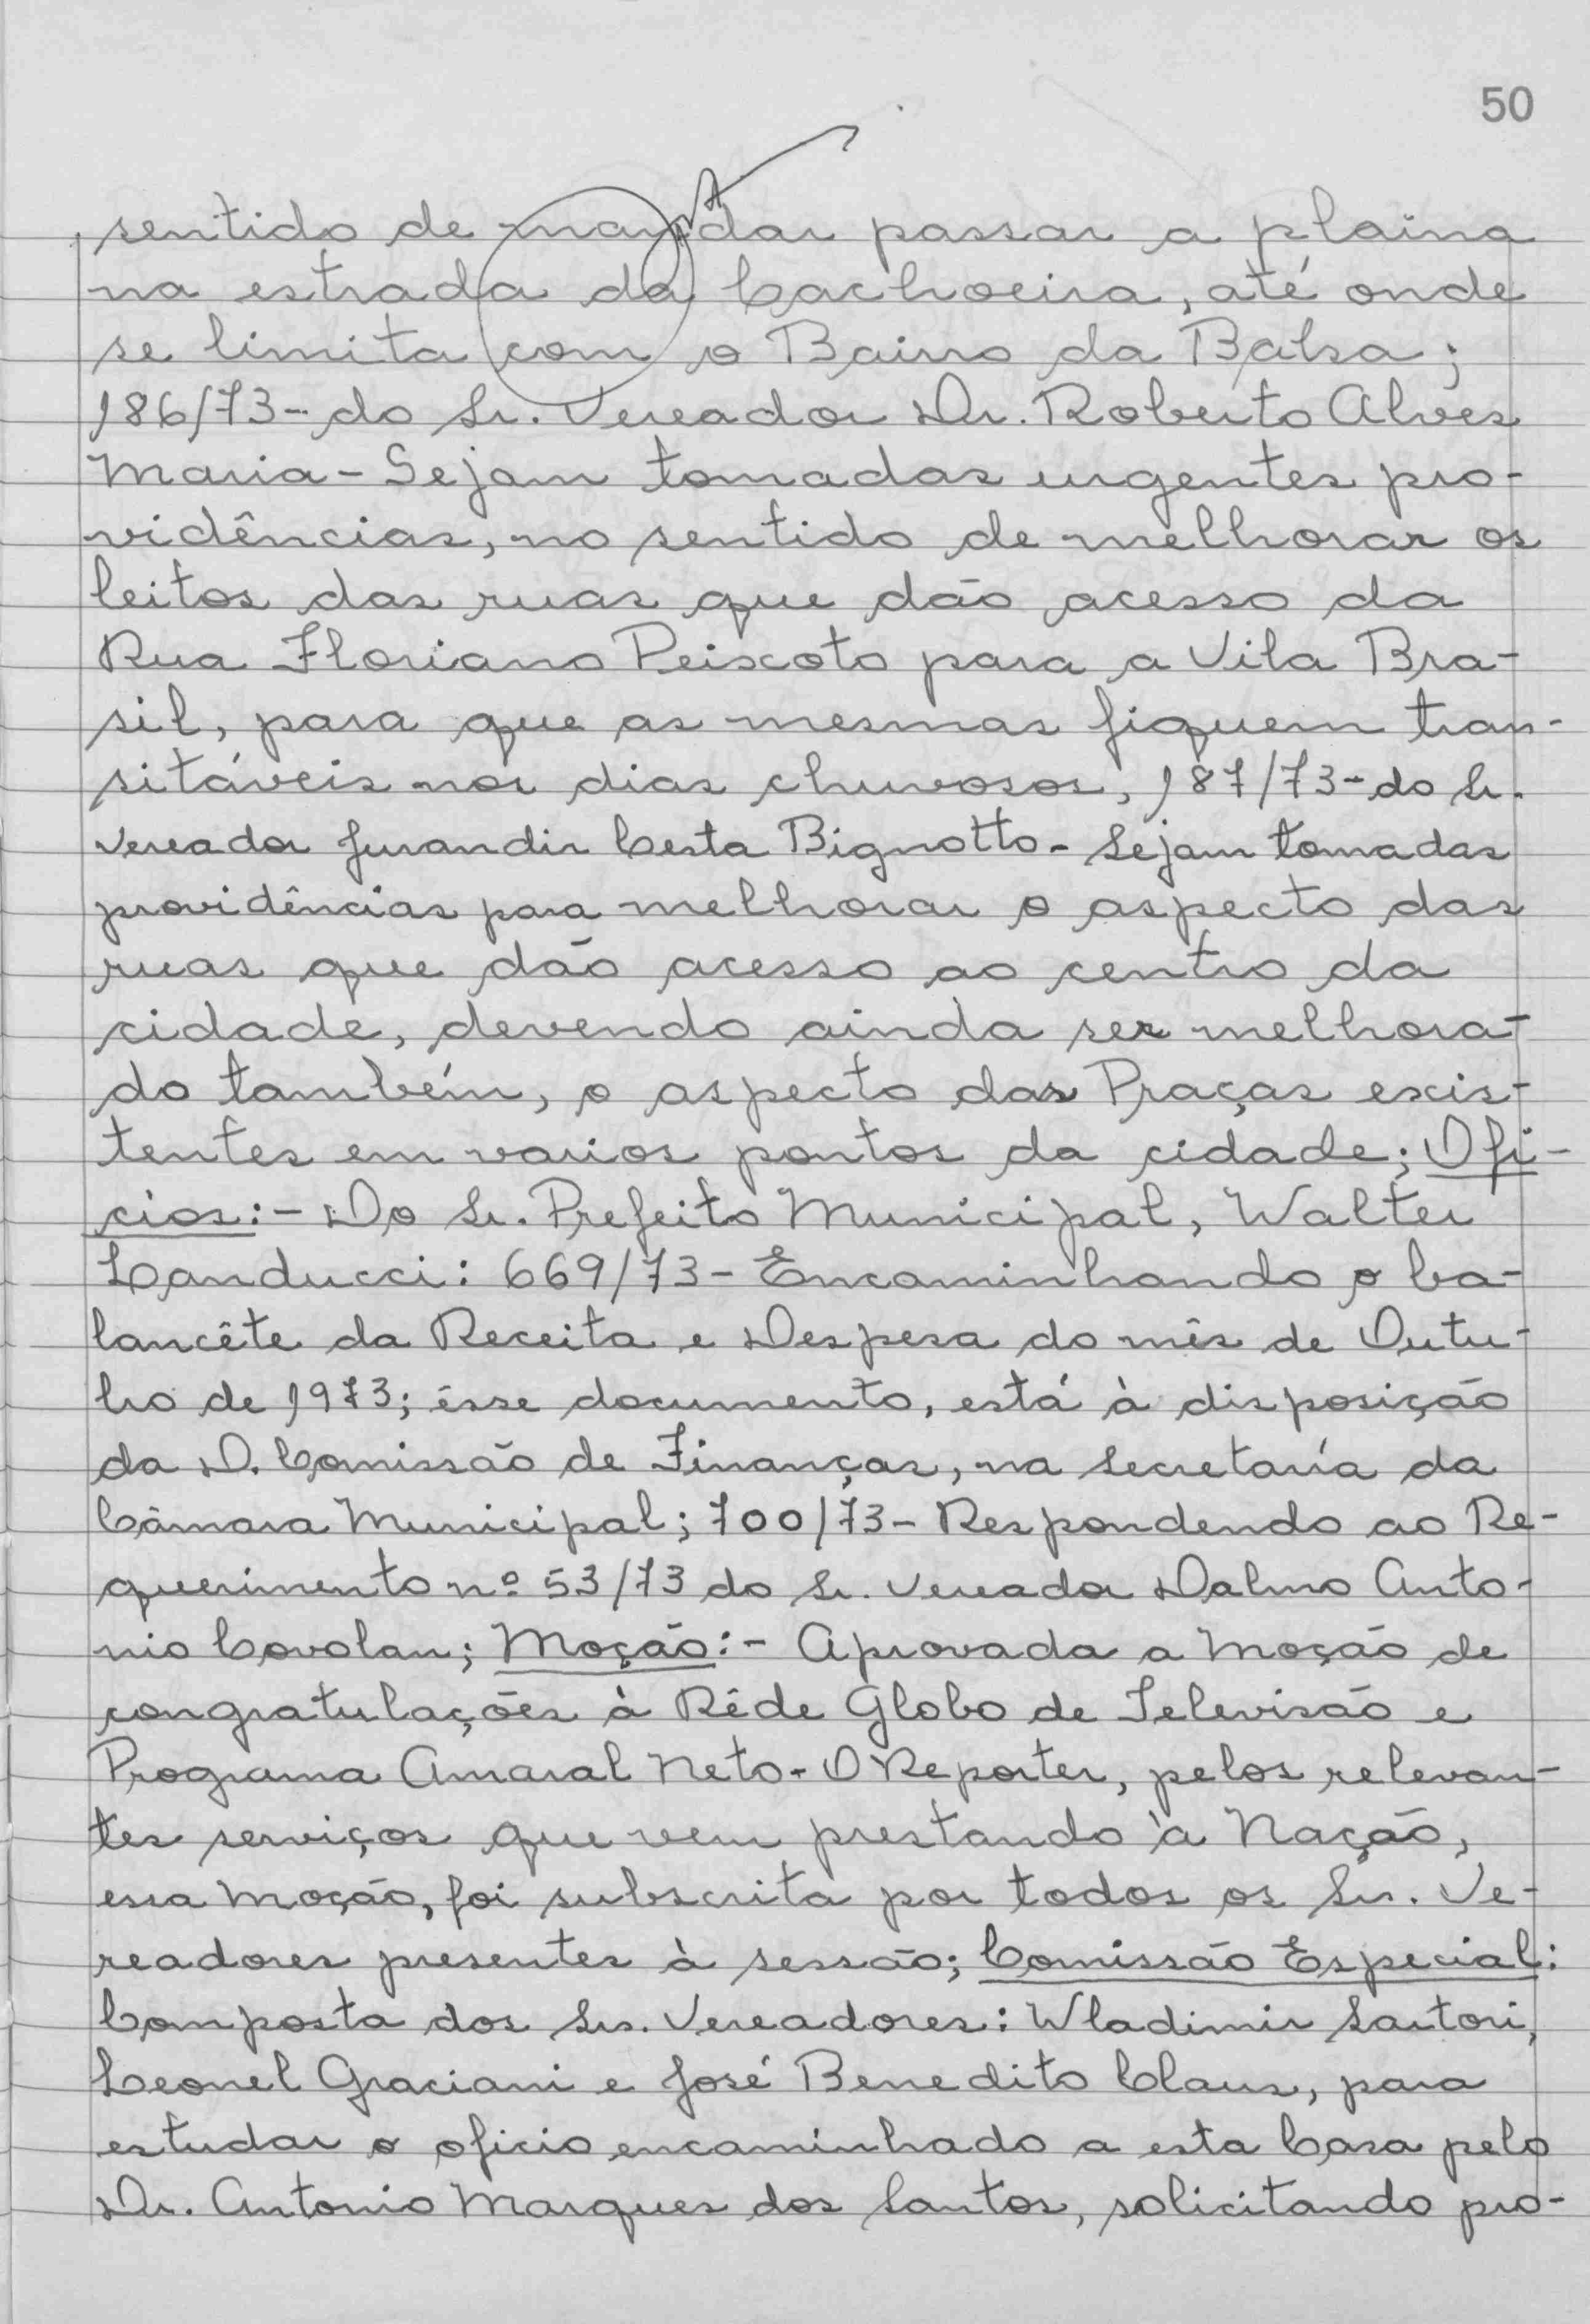 50
sentido de mandar passar a plaina
na estrada da Cachoeira, até onde
se limita com o Bairro da Balsa;
186/73- do Sr. Vereador Dr. Roberto Alves
Maria - Sejam tomadas urgentes pro-
vidências, no sentido de melhorar os
leitos das ruas que dão acesso da
Rua Floriano Peixoto para a Vila Bra-
sil, para que as mesmas fiquem tran-
sitáveis nos dias chuvosos, 187/73- do Sr.
Vereador Jurandir Certa Bignotto- Sejam tomadas
providências para melhorar o aspecto das
ruas que dão acesso ao centro da
cidade, devendo ainda ser melhora-
do também, o aspecto das Praças exis-
tentes em varios pontos da cidade; Ofi-
cios:- Do Sr. Prefeito Municipal, Walter
Landucci: 669/73- Encaminhando o ba-
lancête da Receita e Despesa do mês de Outu-
bro de 1973; êsse documento, está à disposição
da D. Comissão de Finanças, na Secretaría da
Câmara Municipal; 700/73- Respondendo ao Re-
querimento nº 53/73 do Sr. Vereador Dalmo Anto-
nio Covolan; Moção:- Aprovada a Moção de
congratulações à Rêde Globo de Televisão e
Programa Amaral Neto- O Reporter, pelos relevan-
tes serviços que vem prestando à Nação,
essa Moção, foi subscrita por todos os Srs. Ve-
readores presentes à sessão; Comissão Especial:
Composta dos Srs. Vereadores: Wladimir Sartori,
Leonel Graciani e José Benedito Claus, para
estudar o oficio encaminhado a esta Casa pelo
Dr. Antonio Marques dos Santos, solicitando pro-